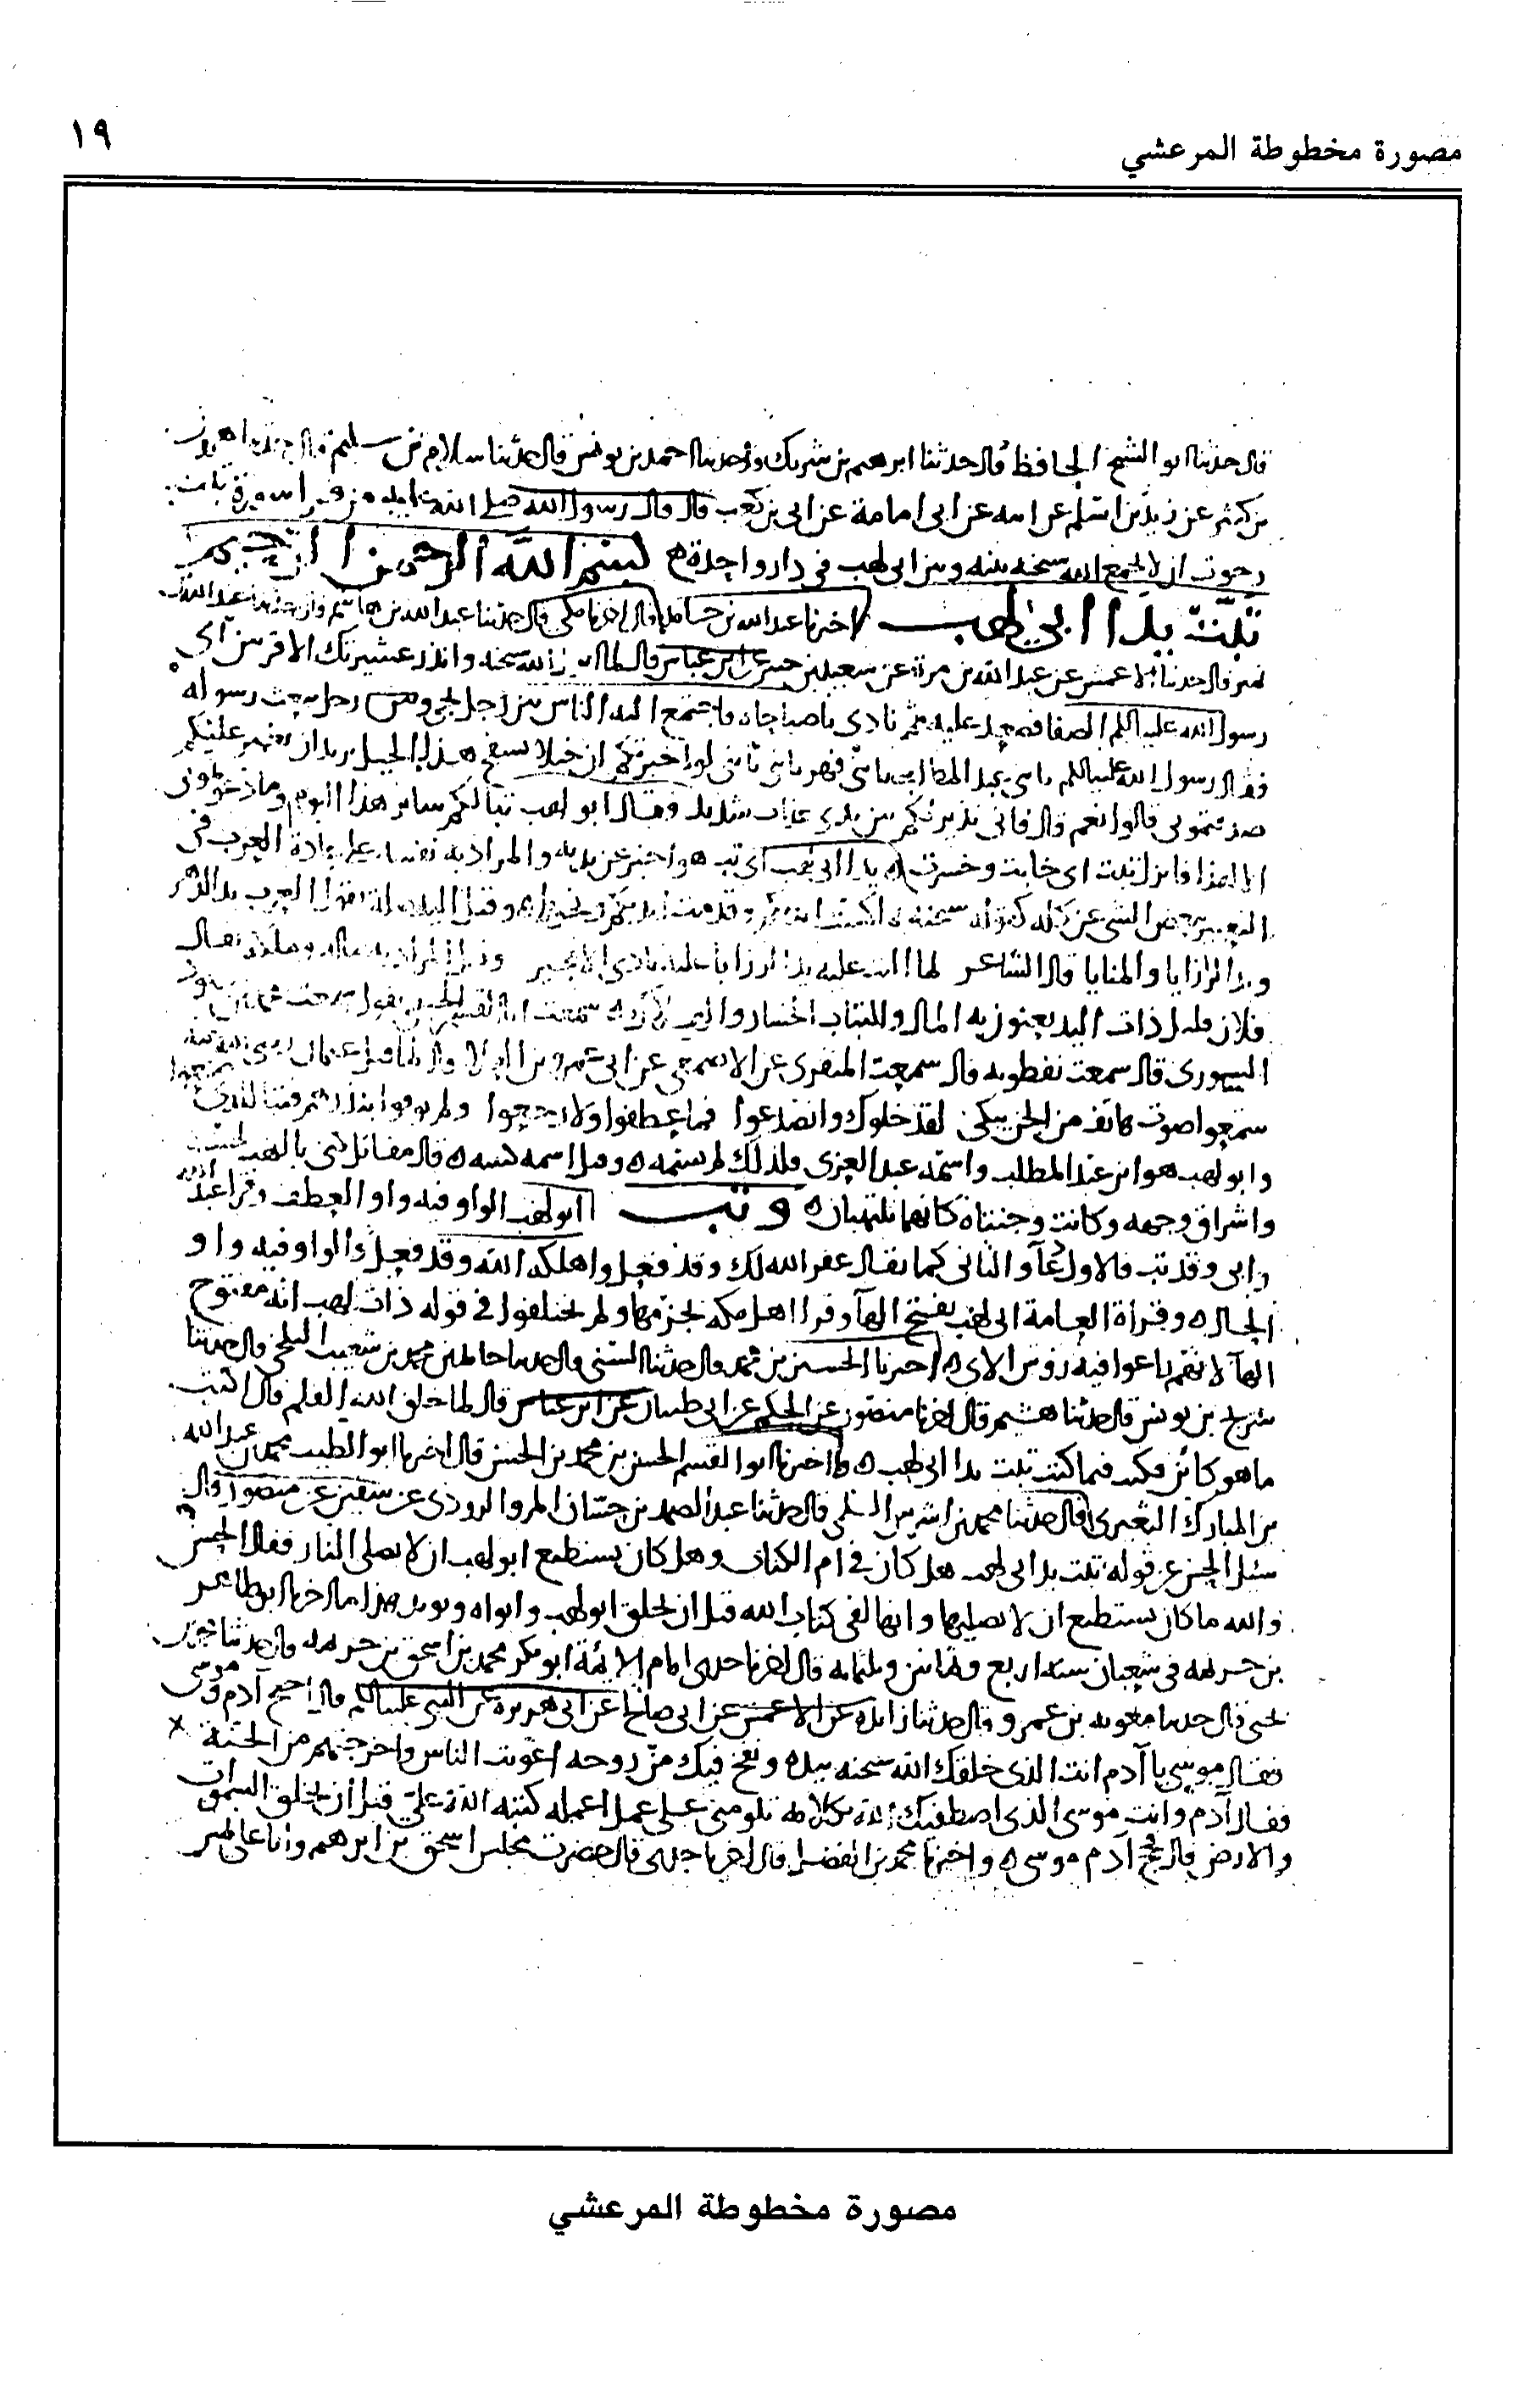 مصورة مخطوطة المرعشي
١٩
قال حدثنا ابو الشيخ الحافظ قال حدثنا ابرهيم بن شريك وحدثنا احمد بن يونس قال حدثنا سلام بن سليم قال حدثنا هرون
بن كثير عن زيد بن اسلم عن ابيه عن ابي امامة عن ابي بن كعب قال قال رسول الله صلى الله عليه من قرا سورة تبت
رجوت ان لا يجمع الله سبحنه بينه وبين ابي لهب في دار واحدة ه بسم الله الرحمن الرحيم
تبت يدا ابي لهب اخبرنا عبد الله بن حامد قال اخبرنا مكي قال حدثنا عبد الله بن هاشم قال حدثنا عبد الله بن
نمير قال حدثنا الاعمش عن عبد الله بن مرة عن سعيد بن جبير عن ابن عباس قال لما انزل الله سبحنه وانذر عشيرتك الاقربين اتى
رسول الله عليه السلم الصفا فصعد عليه ثم نادى يا صباحاه فاجتمع اليه الناس بين رجل يجي وبين رجل يبعث رسوله
فقال رسول الله عليه السلم يا بني عبد المطلب يا بني فهر يا بني يا بني لو اخبرتكم ان خيلا بسفح هذا الجبل يريد ان تغير عليكم
صدقتموني قالوا نعم قال فاني نذير لكم بين يدي عذاب شديد فقال ابو لهب تبا لكم ساير هذا اليوم وما دعوتموني
الا لهذا فانزل تبت اي خابت وخسرت ه يدا ابي لهب اي تب هو اخبر عن يديه والمراد به نفسه على عادة العرب في
التعبير ببعض الشي عن كله كقوله سبحنه فبما كسبت ايديكم وقدمت ايديكم ونحوها وقيل اليد صلة تقول العرب يد الدهر
ويد الرزايا والمنايا قال الشاعر لما اكبت عليه يد الرزايا عليه نادى الا مجير وقيل المراد به ماله وملكه يقال
فلان قليل ذات اليد يعنون به المال والتباب الخسار والهلاك ه سمعت ابا القسم الحبيبي يقول سمعت محمد بن مسعود
السوري قال سمعت نفطويه قال سمعت المنقري عن الاصمعي عن ابي عمرو بن العلا قال لما قتل عثمان رضي الله عنه
سمعوا صوت هاتف من الجن يبكي لقد خلوك وانصدعوا فما عطفوا ولا رجعوا ولم يوفوا بنذرهم فتبا للذي صنعوا
وابو لهب هو ابن عبد المطلب واسمه عبد العزى فلذلك لم يسمه ه وقيل اسمه كنيته ه قال مقاتل كني بابي لهب لحسنه
واشراق وجهه وكانت وجنتاه كانهما تلتهبان ه وتب ابو لهب الواو فيه واو العطف وقرا عبد الله
وابي وقد تب فالاول دعآ والثاني كما يقال غفر الله لك وقد فعل واهلكه الله وقد فعل والواو فيه واو
الحال ه وقراة العامة ابي لهب بفتح الهآ وقرا اهل مكه بجزمها ولم يختلفوا في قوله ذات لهب انه مفتوح
الهآ لانهم راعوا فيه رؤس الاي ه اخبرنا الحسين بن محمد قال حدثنا السني قال حدثنا حامد بن محمد بن شعيب البلخي قال حدثنا
سريج بن يونس قال حدثنا هشيم قال اخبرنا منصور عن الحكم عن ابي ظبيان عن ابن عباس قال لما خلق الله القلم قال اكتب
ما هو كائن فكتب فيما كتب تبت يدا ابي لهب ه واخبرنا ابو القسم الحسن بن محمد بن الحسن قال اخبرنا ابو الطيب محمد بن عبد الله
بن المبارك الشعيري قال حدثنا محمد بن اشرس السلمي قال حدثنا عبد الصمد بن حسان المروالروذي عن سفين عن منصور قال
سئل الحسن عن قوله تبت يدا ابي لهب هل كان في ام الكتاب وهل كان يستطيع ابو لهب ان لا يصلى النار فقال الحسن
والله ما كان يستطيع ان لا يصليها وانها لفي كتاب الله قبل ان يخلق ابو لهب وابواه ويويد هذا ما اخبرنا ابو طاهر
بن خزيمه في شعبان سنه اربع وثمانين وثلثمايه قال اخبرنا جدي امام الايمة ابو بكر محمد بن اسحق بن خزيمه قال حدثنا محمد بن
يحيى قال حدثنا معويه بن عمرو قال حدثنا زايده عن الاعمش عن ابي صالح عن ابي هريرة عن النبي عليه السلم قال احتج آدم وموسى
فقال موسى يا آدم انت الذي خلقك الله سبحنه بيده ونفخ فيك من روحه اغويت الناس واخرجتهم من الجنة
فقال آدم وانت موسى الذي اصطفيك الله بكلامه تلومني على عمل اعمله كتبه الله علي قبل ان يخلق السموات
والارض قال فحج آدم موسى ه واخبرنا محمد بن الفضل قال اخبرنا جدي قال حضرت مجلس اسحق بن ابرهيم وانا غالم
مصورة مخطوطة المرعشي